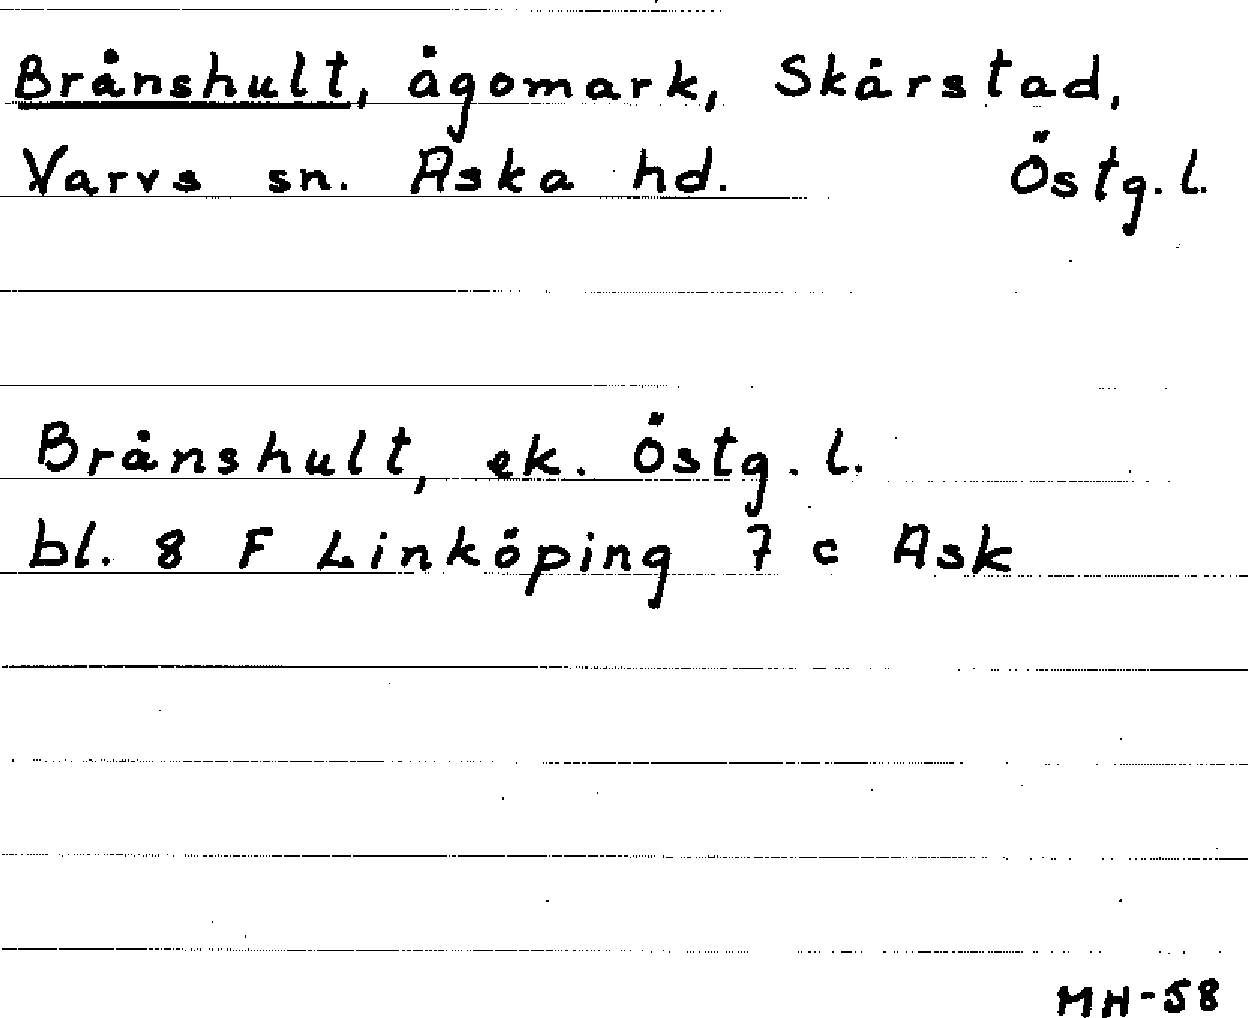 Brånshult, ägomark, Skårstad,
Varvs sn. Aska hd. Östg. l.
Brånshult, ek. Östg. l.
bl. 8 F Linköping 7 c Ask
MH-58